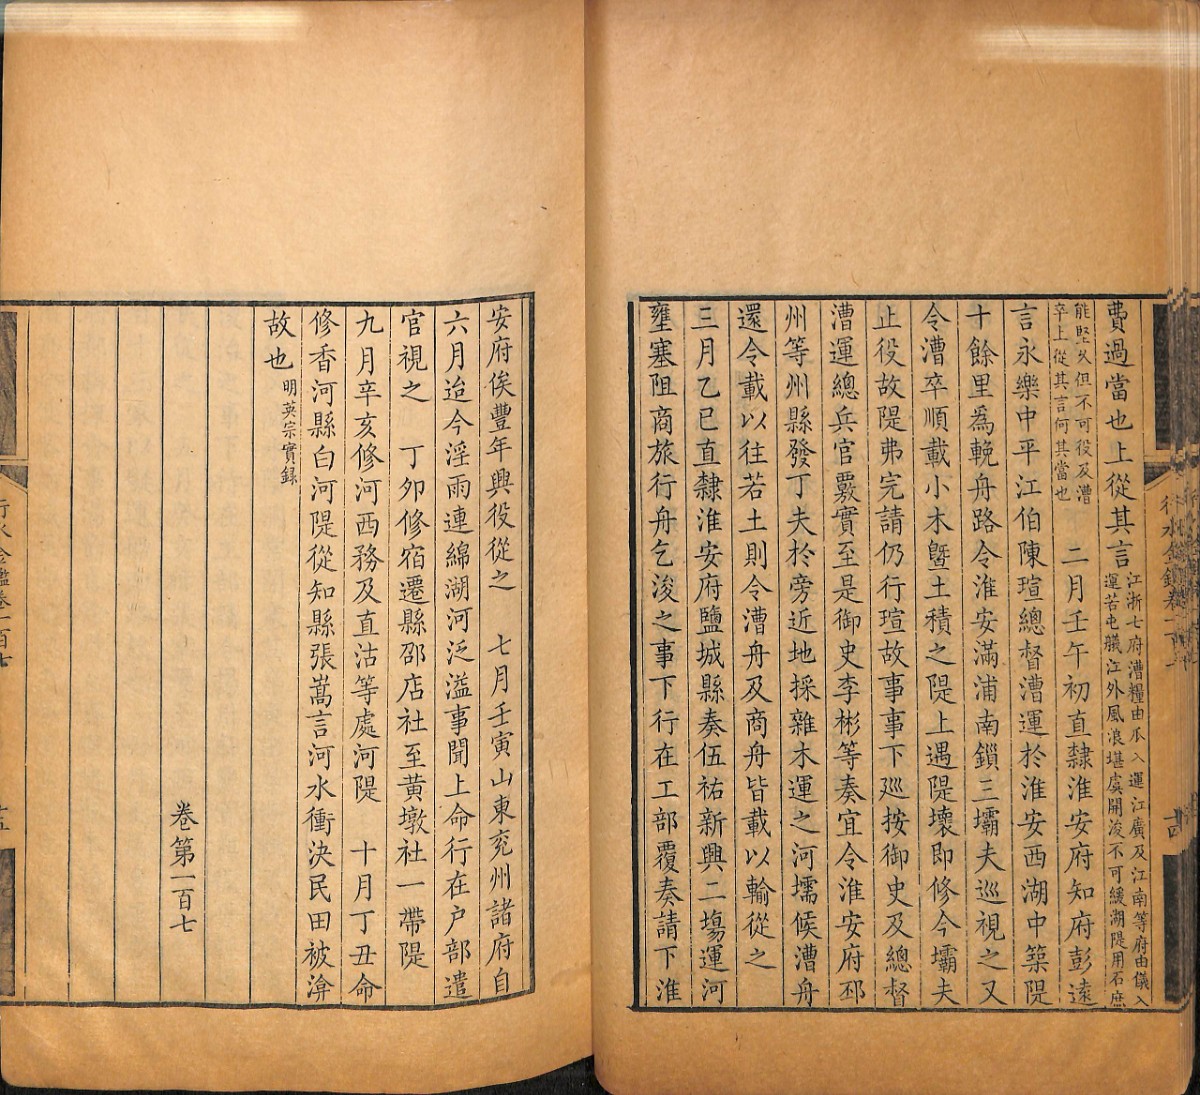 費過當也上從其言江浙七府漕糧由瓜入運江廣及江南等府由儀入
運苦屯艤江外風浪堪虞開浚不可緩湖隄用石庶
能堅久但不可役及漕
卒上從其言何其當也 二月壬午初直隸淮安府知府彭遠
言永樂中平江伯陳瑄總督漕運於淮安西湖中築隄
十餘里爲輓舟路令淮安滿浦南鎖三壩夫巡視之又
令漕卒順載小木曁土積之隄上遇隄壞即修今壩夫
止役故隄弗完請仍行瑄故事事下巡按御史及總督
漕運總兵官覈實至是御史李彬等奏宜令淮安府邳
州等州縣發丁夫於旁近地採雜木運之河壖候漕舟
還令載以往若土則令漕舟及商舟皆載以輸從之
三月乙巳直隸淮安府鹽城縣奏伍祐新興二塲運河
壅塞阻商旅行舟乞浚之事下行在工部覆奏請下淮
安府俟豐年興役從之 七月壬寅山東兖州諸府自
六月迨今淫雨連綿湖河泛溢事聞上命行在户部遣
官視之 丁夘修宿遷縣邵店社至黄墩社一帶隄
九月辛亥修河西務及直沽等處河隄 十月丁丑命
修香河縣白河隄從知縣張嵩言河水衝決民田被渰
故也明英宗實録
卷第一百七
行水金鑑卷一百七